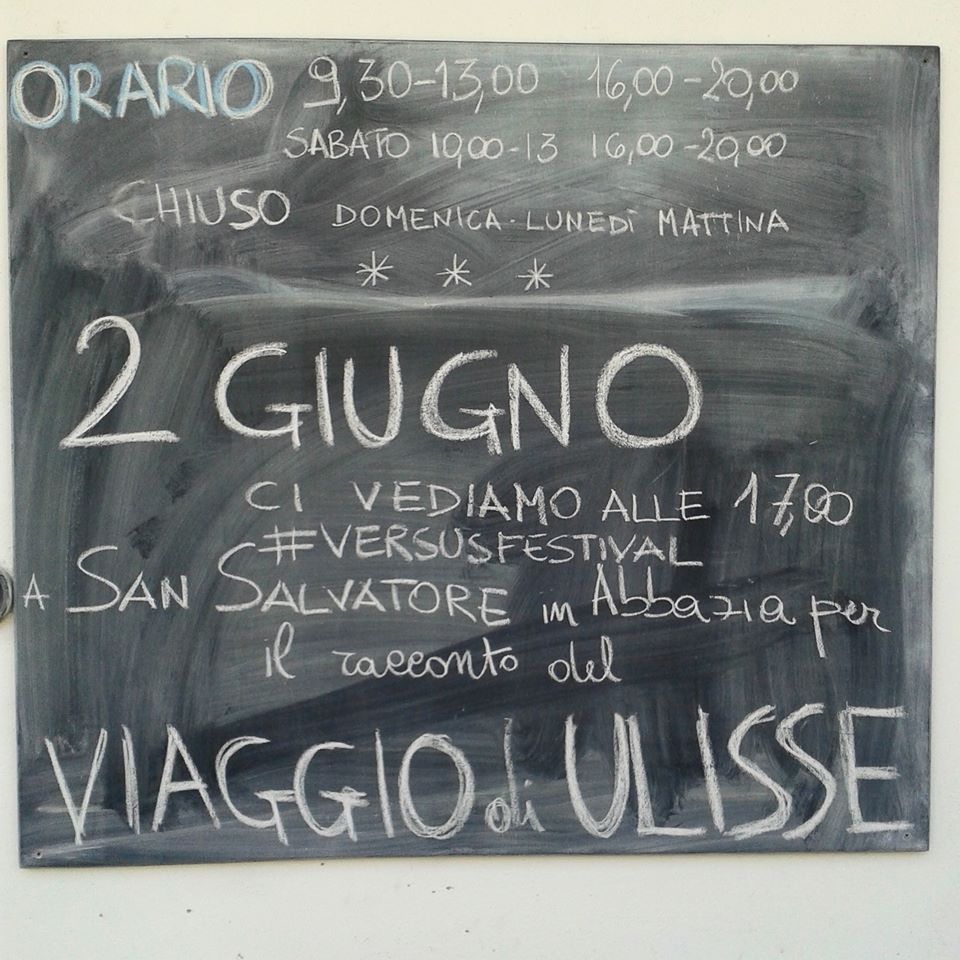 ORARIO 9,30-13,00 16,00-20,00
SABATO 10,00-13 16,00-20,00
CHIUSO DOMENICA-LUNEDÌ MATTINA
* * *
2 GIUGNO
CI VEDIAMO ALLE 17,00
#VERSUSFESTIVAL
A SAN SALVATORE in Abbazia per
il racconto del
VIAGGIO di ULISSE